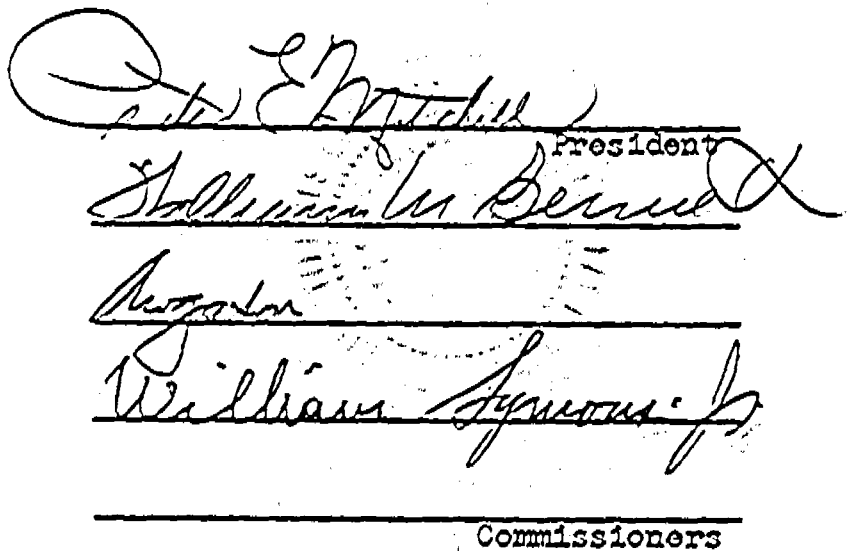 Peter E. Mitchell
President
William M. Bennett
William Symons. Jr
Commissioners